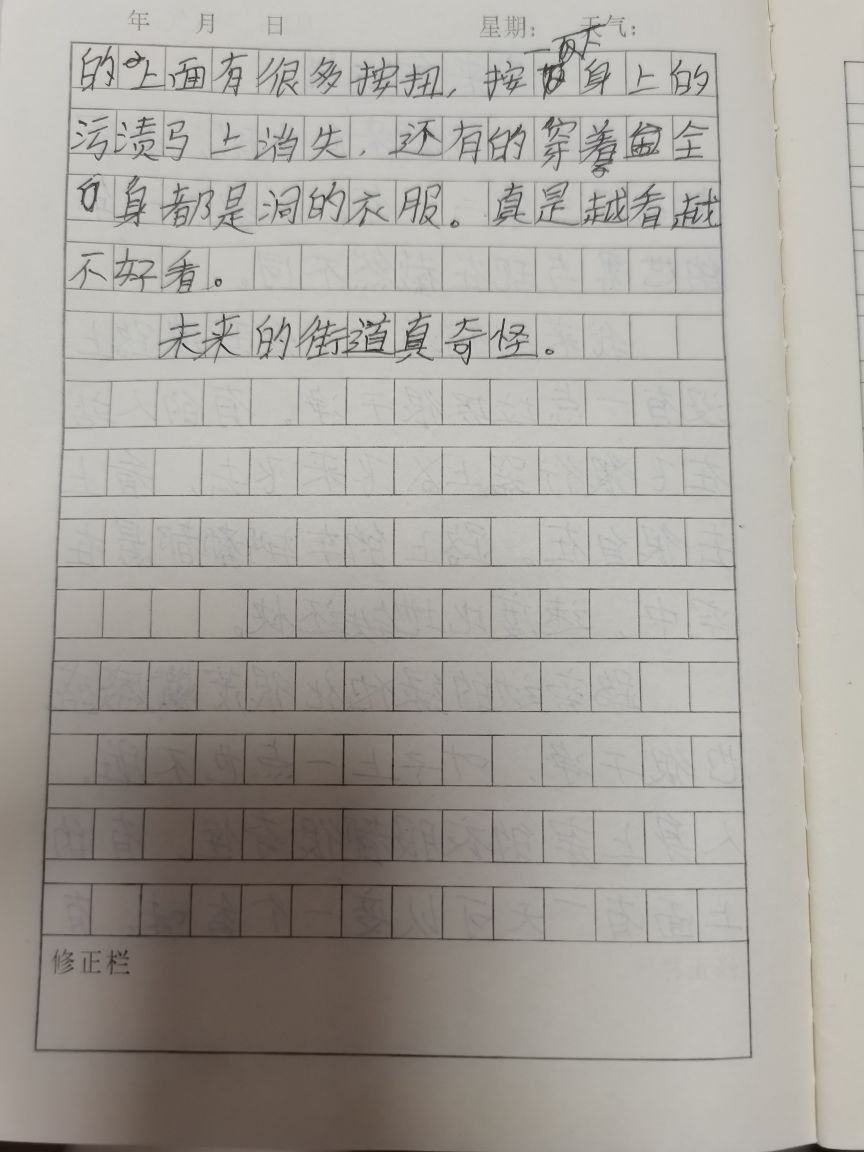 年 月 日 星期: 天气:
一下
的上面有很多按扭，按身上的
污渍马上消失，还有的穿着全
身都是洞的衣服。真是越看越
不好看。
未来的街道真奇怪。
修正栏